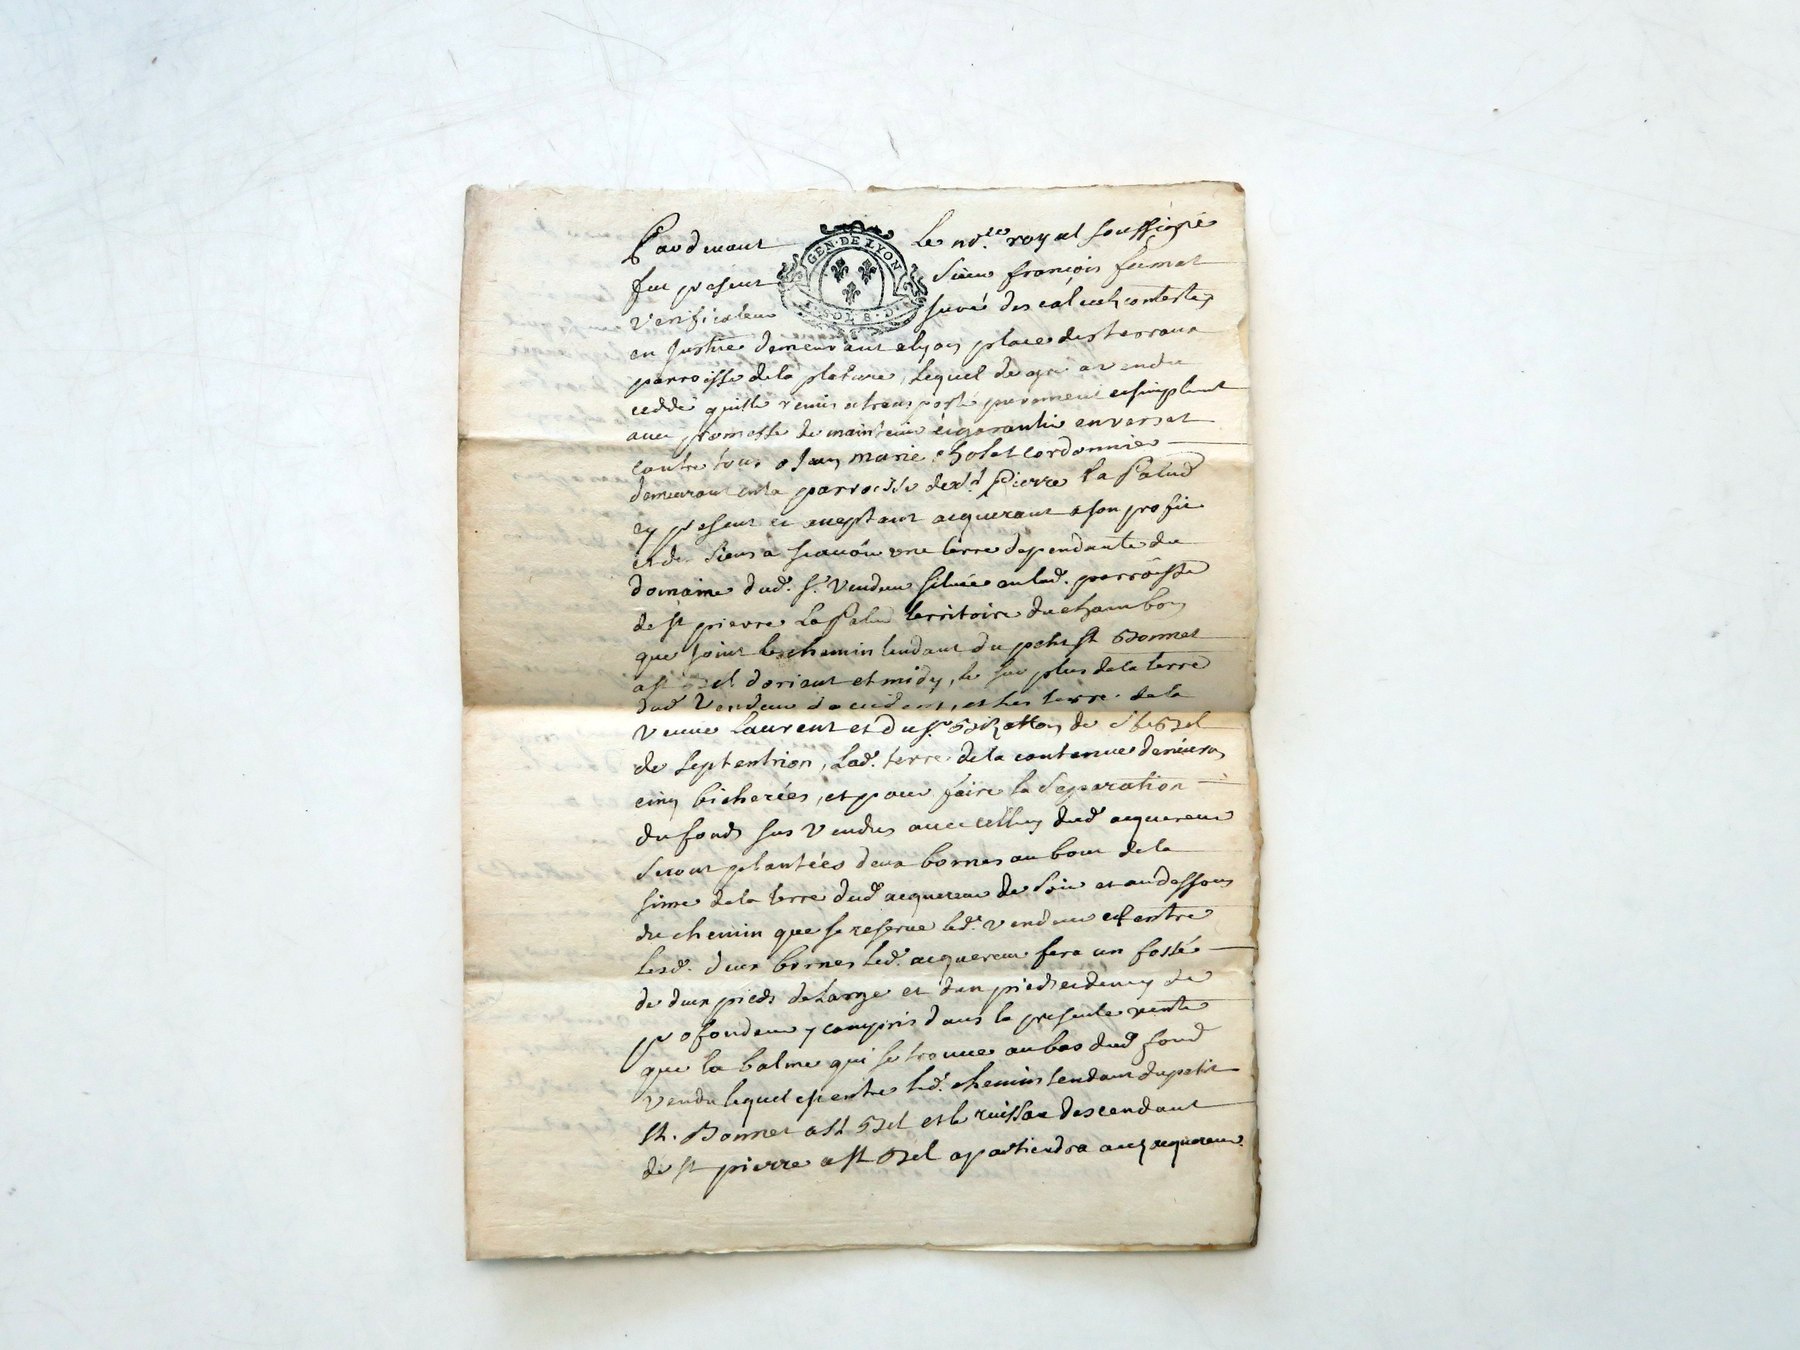 Pardevant Le no.re royal soussigné
GEN · DE LYON
fut present Sieur françois fermat
verificateur juré des calculs contestés
SOL 8 D
en justice demeurant a lyon place des terreaux
parroisse de la platiere, lequel de gré a vendu
ceddé quitté remis et transporté purement et simplement
avec promesse de maintenir et garantir envers et
contre tous a Jean marie cholet cordonnier
demeurant en la parroisse de St Pierre la Palud
cy present et acceptant acquerant a son profit
et des siens a scauoir une terre dependante du
domaine dud. Sr. Vendeur situee en lad. parroisse
de St pierre La Palud territoire du chambon
que joint le chemin tendant du petit St Bonnet
a St Bel d'orient et midy, le surplus de la terre
dud Vendeur d'occident, et les terre de la
veuve Laurent et du Sr de St Bel
de septentrion, Lad. terre de la contenue d'environ
cinq bicherées, et pour faire la separation
du fonds sus vendus avec celluy dud acquereur
seront plantées deux bornes au bout de la
sime de la terre dud acquereur de soir et au dessous
du chemin que se reserve led. vendeur et entre
lesd. deux bornes led. acquereur fera un fossé
de deux pieds de large et d'un pied et demy de
profondeur y compris dans la presente vente
que la balme qui se trouve au bas dud fond
vendu lequel est entre led. chemin tendant du petit
St. Bonnet a St Bel et le ruisseau descendant
de St pierre a St Bel apartiendra aud acquereur